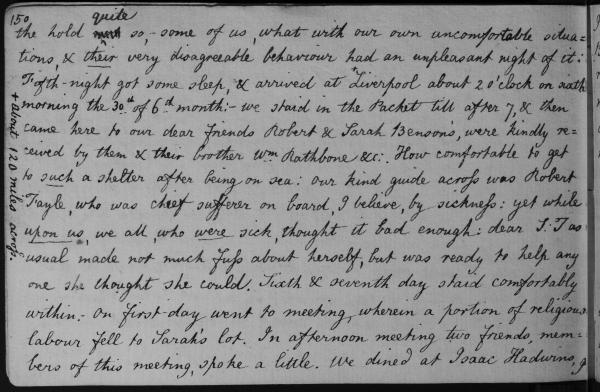 150
the hold quite so,- some of us, what with our own uncomfortable situa=
tions, & their very disagreeable behaviour had an unpleasant night of it:
got some sleep, & arrived at Liverpool about 2 o'clock on sixth
morning the 30th of 6th month:- we staid in the Packet till after 7, & then
came here to our dear friends Robert & Sarah Benson's, were kindly re=
ceived by them & their brother Wm Rathbone &c:. How comfortable to get
to such a shelter after being on sea: our kind guide across was Robert
Fayle, who was chief sufferer on board, I believe, by sickness: yet while
upon us, we all, who were sick, thought it bad enough: dear S. T as
usual made not much fuss about herself, but was ready to help any
one she thought she could. Sixth & seventh day staid comfortably
within:- On first-day went to meeting, wherein a portion of religious
labour fell to Sarah's lot. In afternoon meeting two friends, mem=
bers of this meeting, spoke a little. We dined at Isaac Hadwins,
+ about 120 miles across.